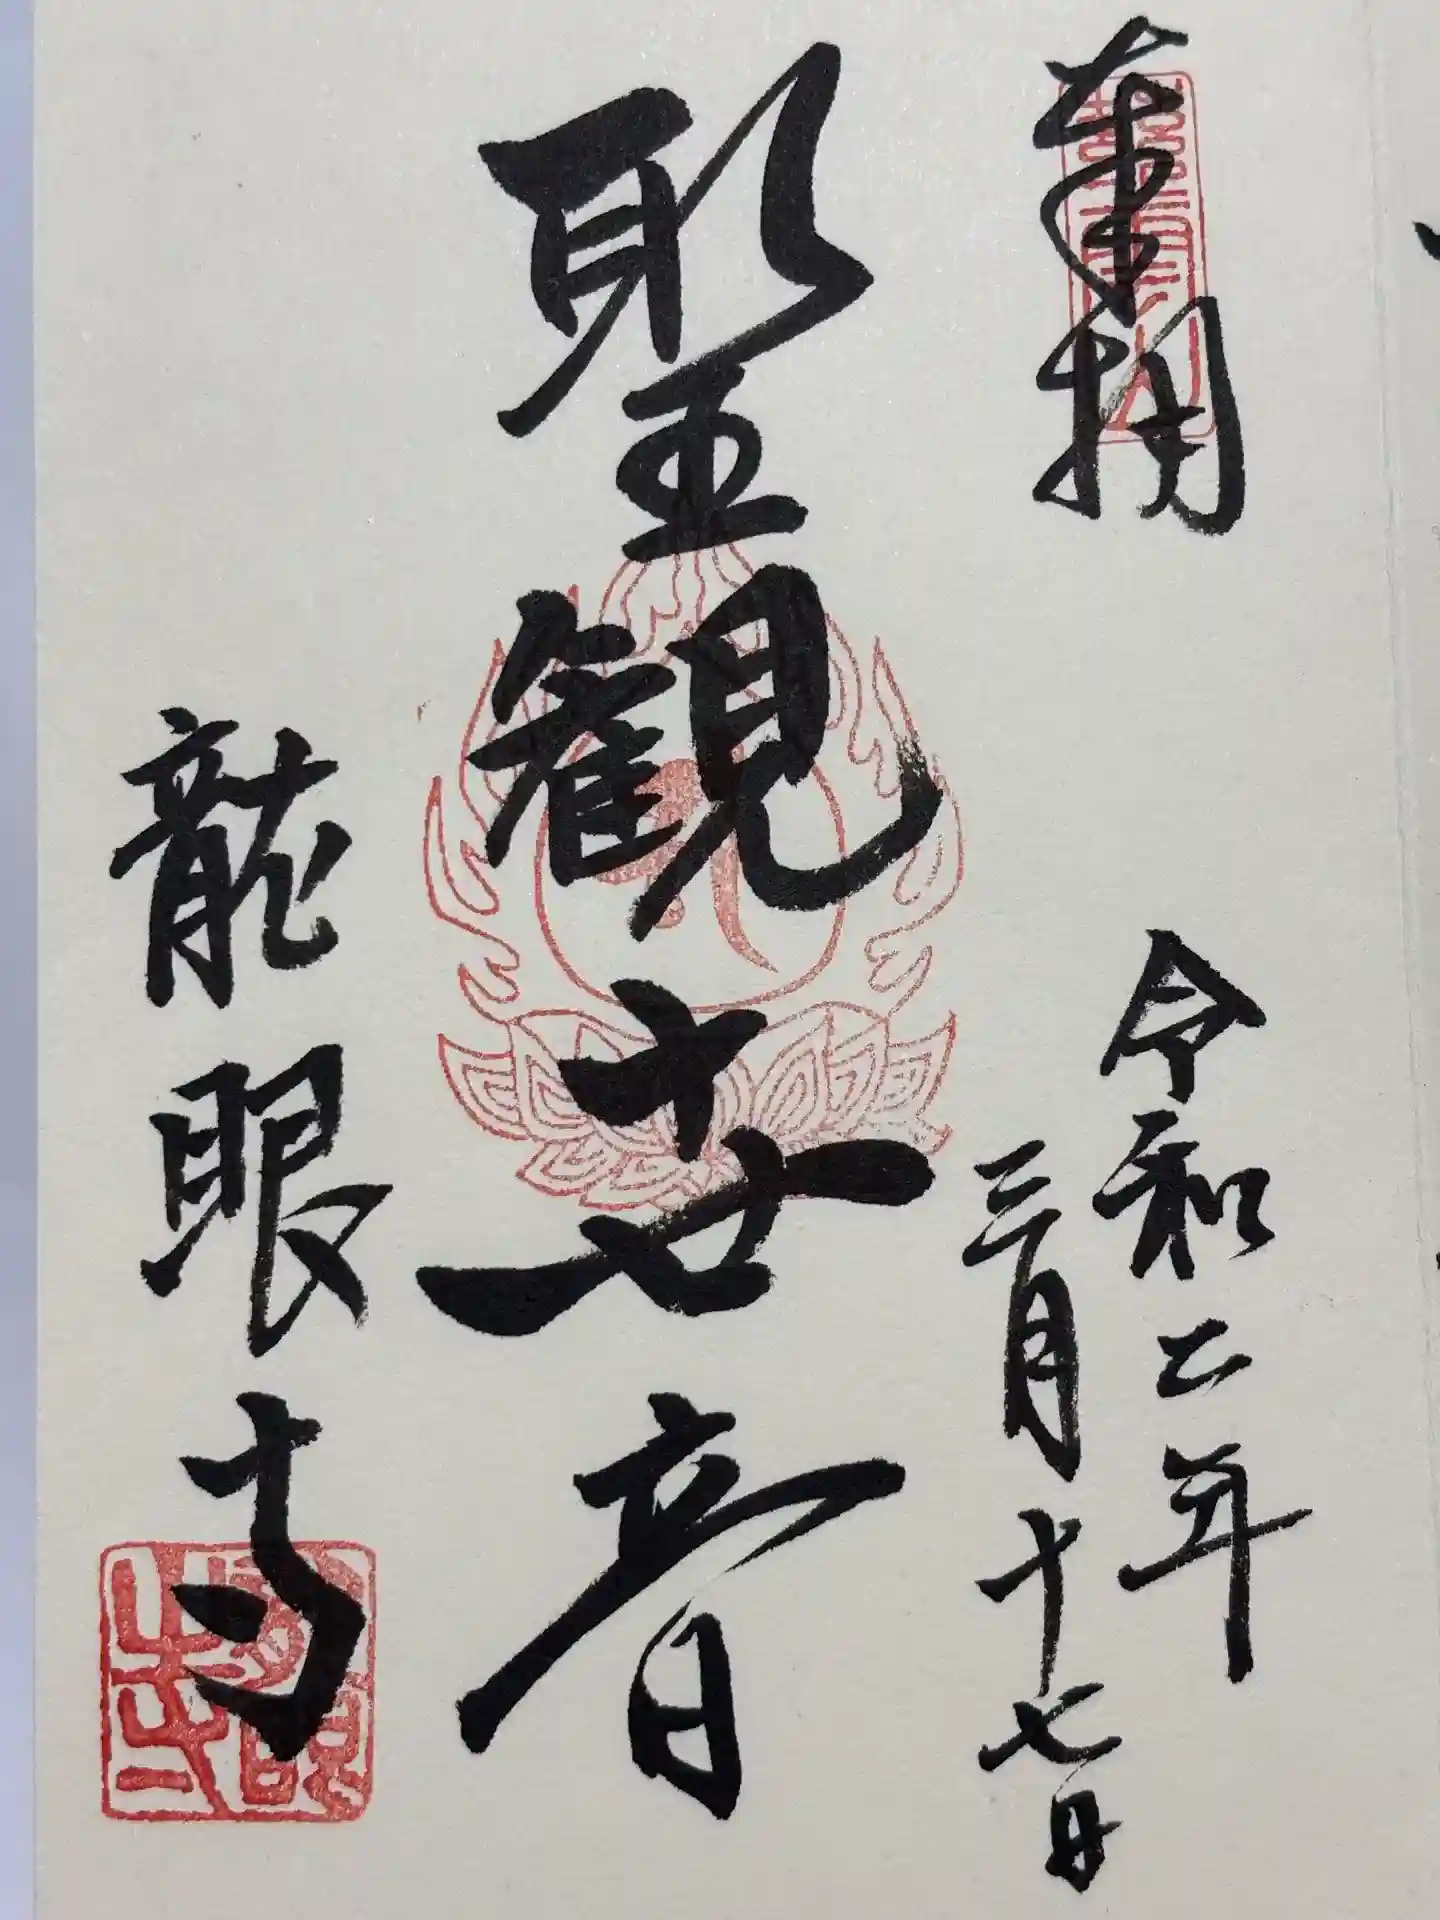 奉拝
令和二年
三月十七日
聖観世音
龍眼寺